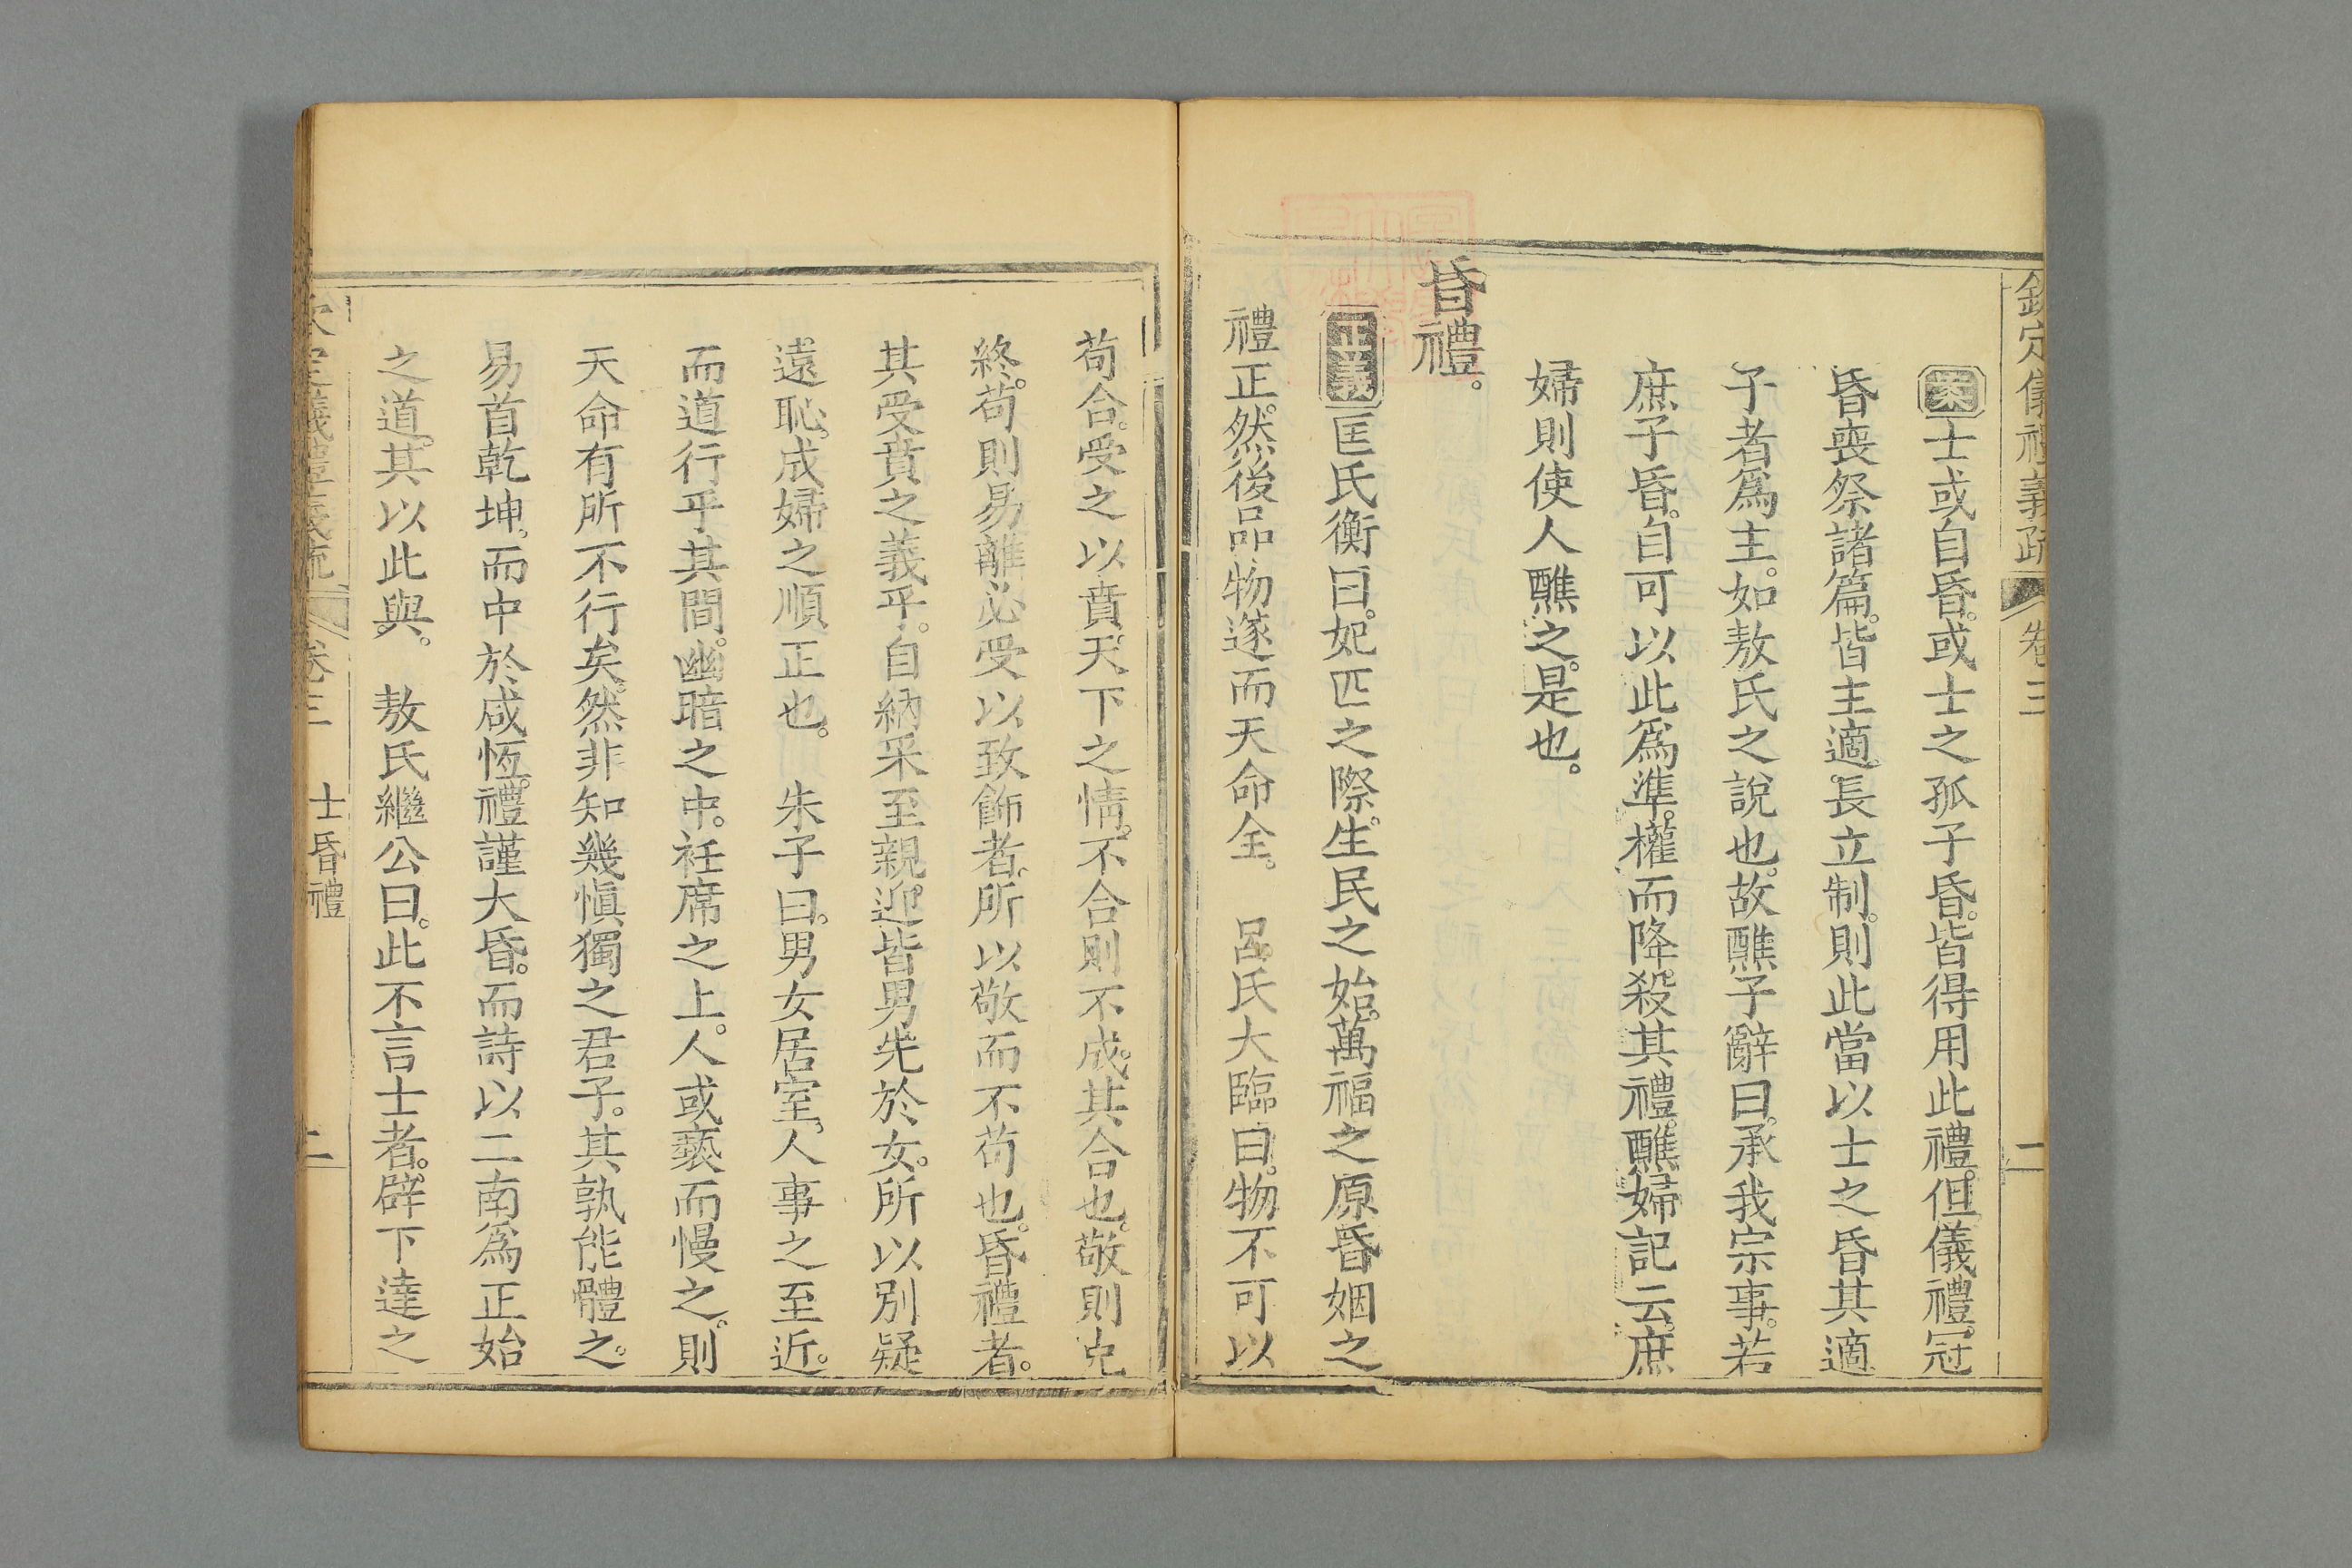 欽定儀禮義疏 卷三 一
案士或自昏。或士之孤子昏。皆得用此禮。但儀禮。冠
昏喪祭諸篇。皆主適長立制。則此當以士之昏其適
子者爲主。如敖氏之說也。故醮子辭曰。承我宗事。若
庶子昏。自可以此爲準。權而降殺其禮。醮婦記云。庶
婦則使人醮之。是也。
昏禮。
正義匡氏衡曰。妃匹之際。生民之始。萬福之原。昏姻之
禮正。然後品物遂而天命全。 呂氏大臨曰。物不可以
苟合。受之以賁。天下之情。不合則不成。其合也。敬則克
終。苟則易離。必受以致飾者。所以敬而不苟也。昏禮者。
其受賁之義乎。自納采至親迎。皆男先於女。所以別疑
遠恥。成婦之順正也。 朱子曰。男女居室。人事之至近。
而道行乎其間。幽暗之中。衽席之上。人或褻而慢之。則
天命有所不行矣。然非知幾愼獨之君子。其孰能體之。
易首乾坤。而中於咸恆。禮謹大昏。而詩以二南爲正始
之道。其以此與。 敖氏繼公曰。此不言士者。辟下達之
欽定儀禮義疏 卷三 士昏禮 二